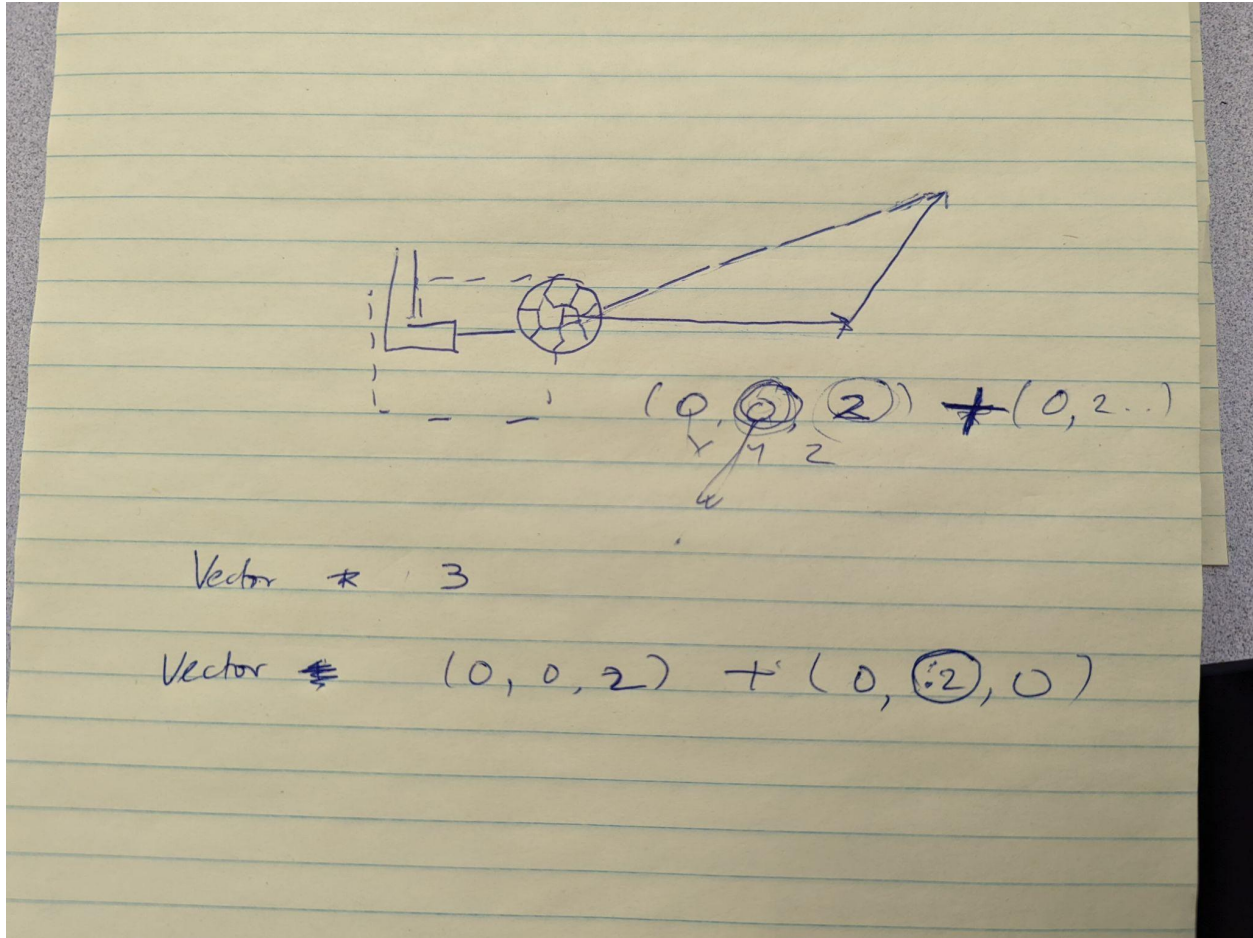 (0, 0, 2) + (0, 2..)
x y z
Vector * 3
Vector (0, 0, 2) + (0, .2, 0)